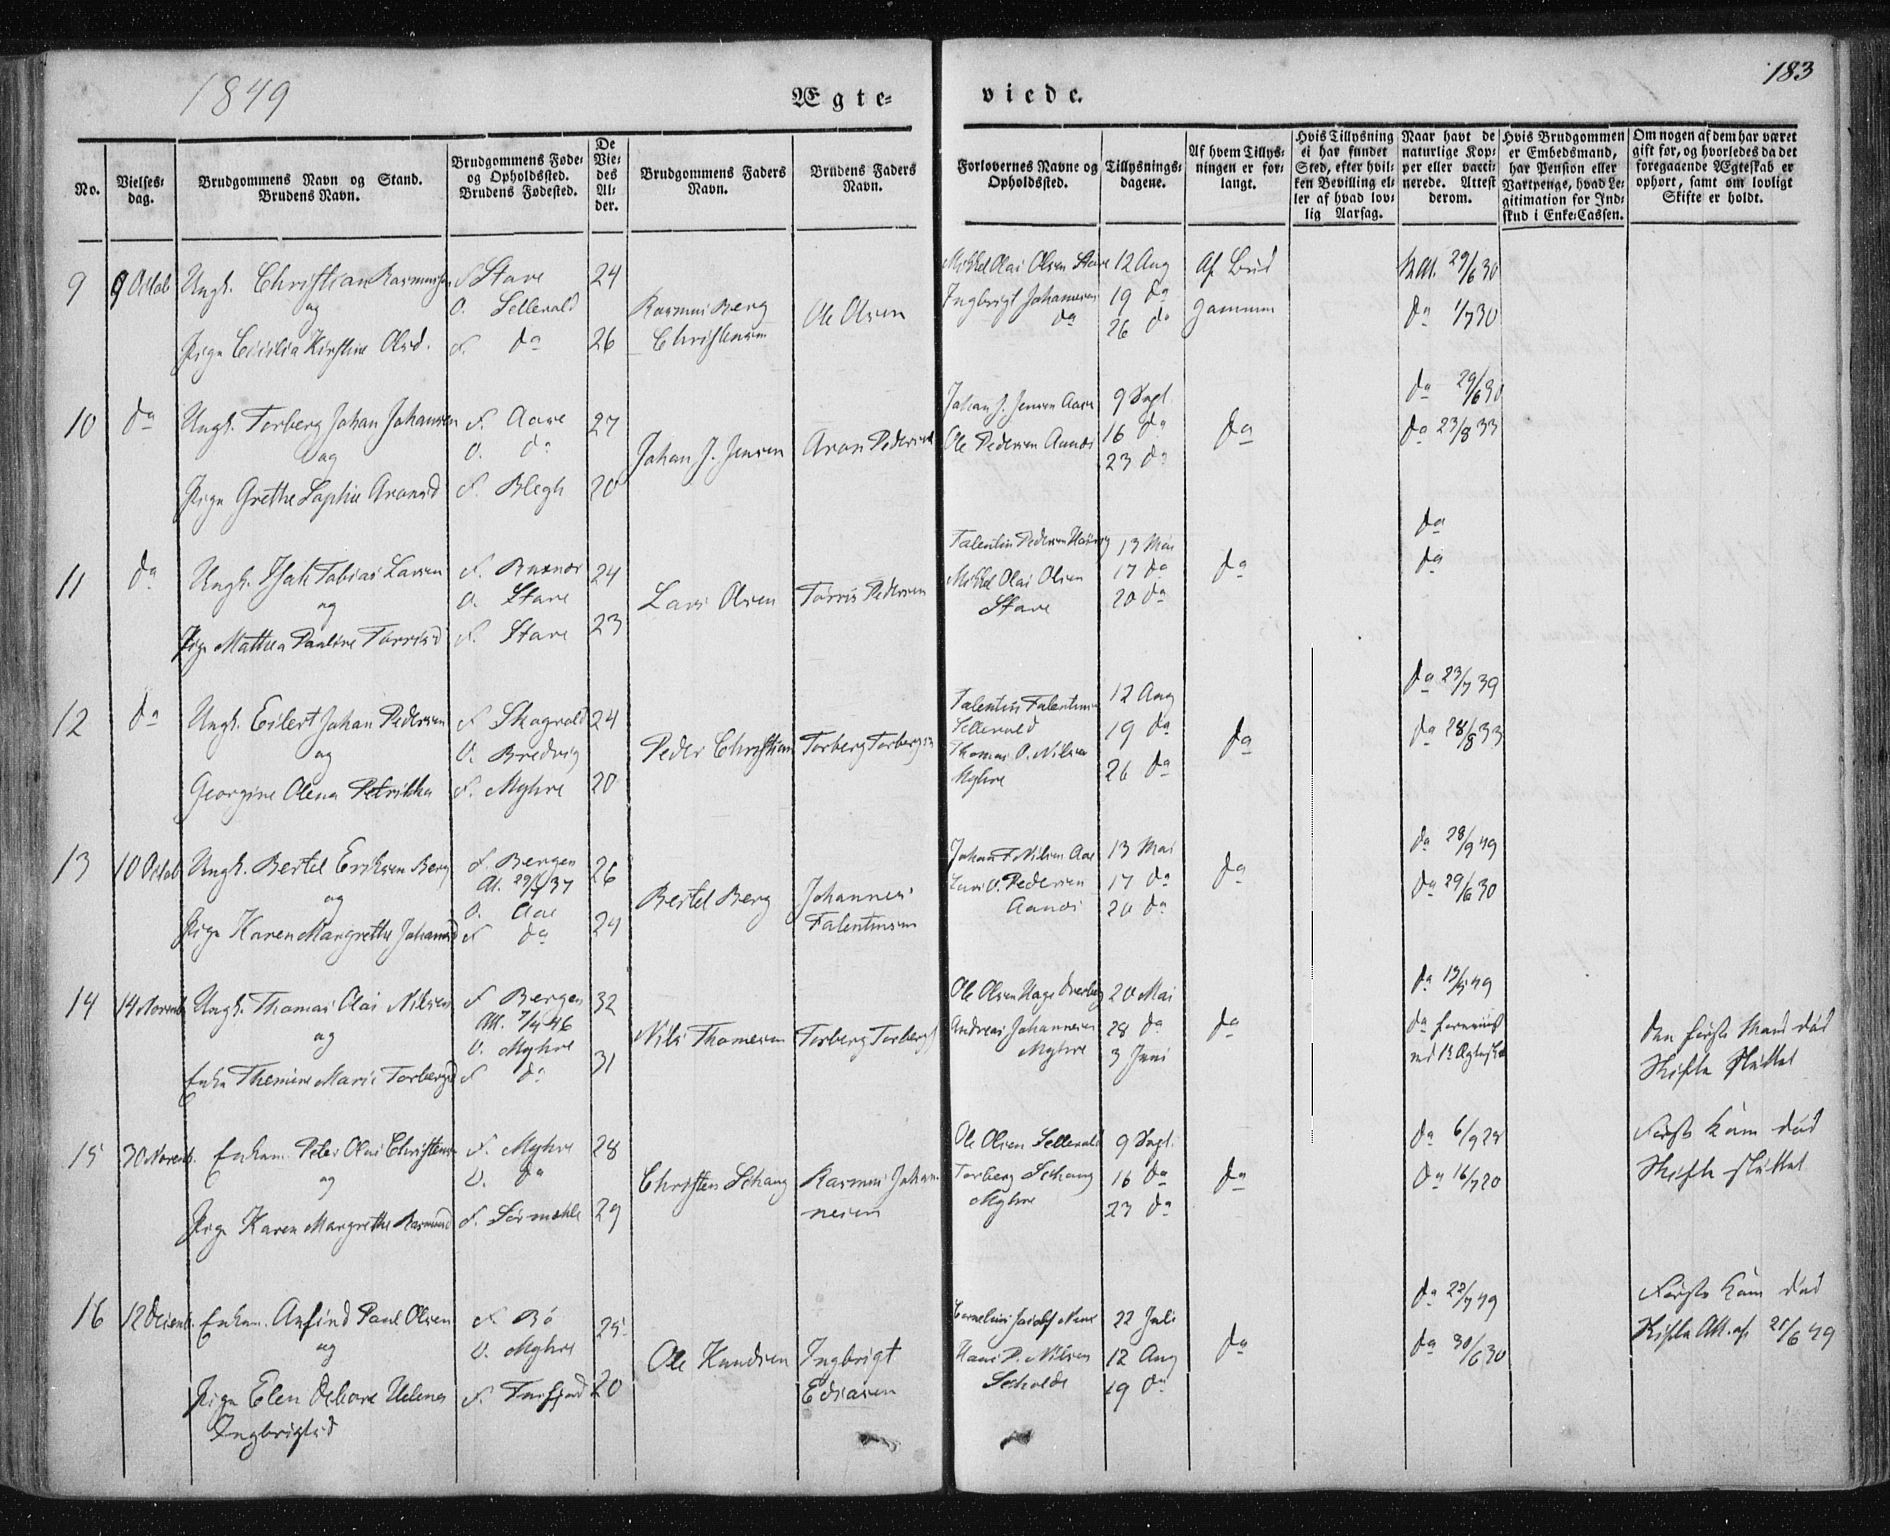 1849
Ægte=
viede.
183
No.
Vielses=
dag.
Brudgommens Navn og Stand.
Brudens Navn.
Brudgommens Føde=
og Opholdssted.
Brudens Fødested.
De
Vie=
des
Al=
der.
Brudgommens Faders
Navn.
Brudens Faders
Navn.
Forlovernes Navne og
Opholdssted.
Tillysnings=
dagene.
Af hvem Tillys=
ningen er for=
langt.
Hvis Tillysning
ei har fundet
Sted, efter hvil=
ken Bevilling el=
ler af hvad lov=
lig Aarsag.
Naar havt de
naturlige Kop=
per eller vacci=
nerede. Attest
derom.
Hvis Brudgommen
er Embedsmand,
har Pension eller
Vartpenge, hvad Le=
gitimation for Ind=
skud i Enke=Cassen.
Om nogen af dem har været
gift før, og hvorledes da det
foregaaende Ægteskab er
ophørt, samt om lovligt
Skifte er holdt.
9
9 Octob
Ungk. Christian Rasmussen
og
Pige Cecilia Kirstine Olsd.
F. Stave
O. Sellevold
F. do
24
26
Rasmus Berg
Christensen
Ole Olsen
Mikkel Olai Olsen Stave
Ingbrigt Johannesen
do
12 Aug
19 do
26 do
Af Brud
gommen
29/6 30
do 1/7 30
10
do
Ungk. Torberg Johan Johansen
og
Pige Grethe Sophie Aronsd
F. Aare
O. do
F. Blegh
27
20
Johan J. Jensen
Aron Pedersen
Johan J. Jensen Aare
Ole Pedersen Aanæs
9 Sept
16 do
23 do
do
do 29/6 30
do 23/8 33
11
do
Ungk. Isak Tobias Larsen
og
Pige Mathea Pauline Torrisd
F.
O. Stave
F. Stave
24
23
Lars Olsen
Torris Pedersen
Falentin Pedersen
Mikkel Olai Olsen
Stave
13 Mai
17 do
20 do
do
do
do
12
do
Ungk. Eilert Johan Pedersen
og
Georgine Olena Petrikka
F. Skogvold
O. Bredvig
F. Myhre
24
20
Peder Christian
Torberg Torbergsen
Falentin Falentinsen
Sellevold
Thomas O. Nilsen
Myhre
12 Aug
19 do
26 do
do
do 23/7 39
do 28/8 33
13
10 Octob
Ungk. Bertel Eriksen Berg
og
Pige Karen Margrethe Johannesd
F. Bergen
At. 29/5 37
O. Aae
F. do
26
24
Bertel Berg
Johannes
Falentinsen
Johan F. Nilsen Aae
Lars O. Pedersen
Aanæs
13 Mai
17 do
20 do
do
do 28/9 49
do 29/6 30
14
14 Novemb
Ungk. Thomas Olai Nilsen
og
Enke Themine Marie Torbergsd
F. Bergen
Att. 7/4 46
O. Myhre
F. do
32
31
Nils Thomesen
Torberg Torbergs
Ole Olsen Hage
Andreas Johannesen
Myhre
20 Mai
28 do
3 Juni
do
do 13/5 49
do forevist
ved 1ste Ægtesk.
Den første Mand død
Skifte sluttet
15
30 Novemb.
Enkem. Peter Olai Christensen
og
Pige Karen Margrethe Rasmusd
F. Myhre
O. do
F. Sørmæhle
28
29
Christen Schaug
Rasmus Johan=
nesen
Ole Olsen Sellevold
Torberg Schaug
Myhre
9 Sept.
16 do
23 do
do
do 6/9 23
do 16/7 20
Første Kone død
Skifte sluttet
16
12 Decemb.
Enkem. Anfind Paul Olsen
og
Pige Elen Debora Helena
Ingbrigtsd
F. Bø
O. Myhre
F. Forfjord
25
20
Ole Knudsen
Ingbrigt
Ediasen
Cornelius Jacobs
Hans P. Nilsen
22 Juli
12 Aug
19 do
do
do 22/7 49
do 30/6 30
Første Kone død
Skifte Att. af 21/6 49